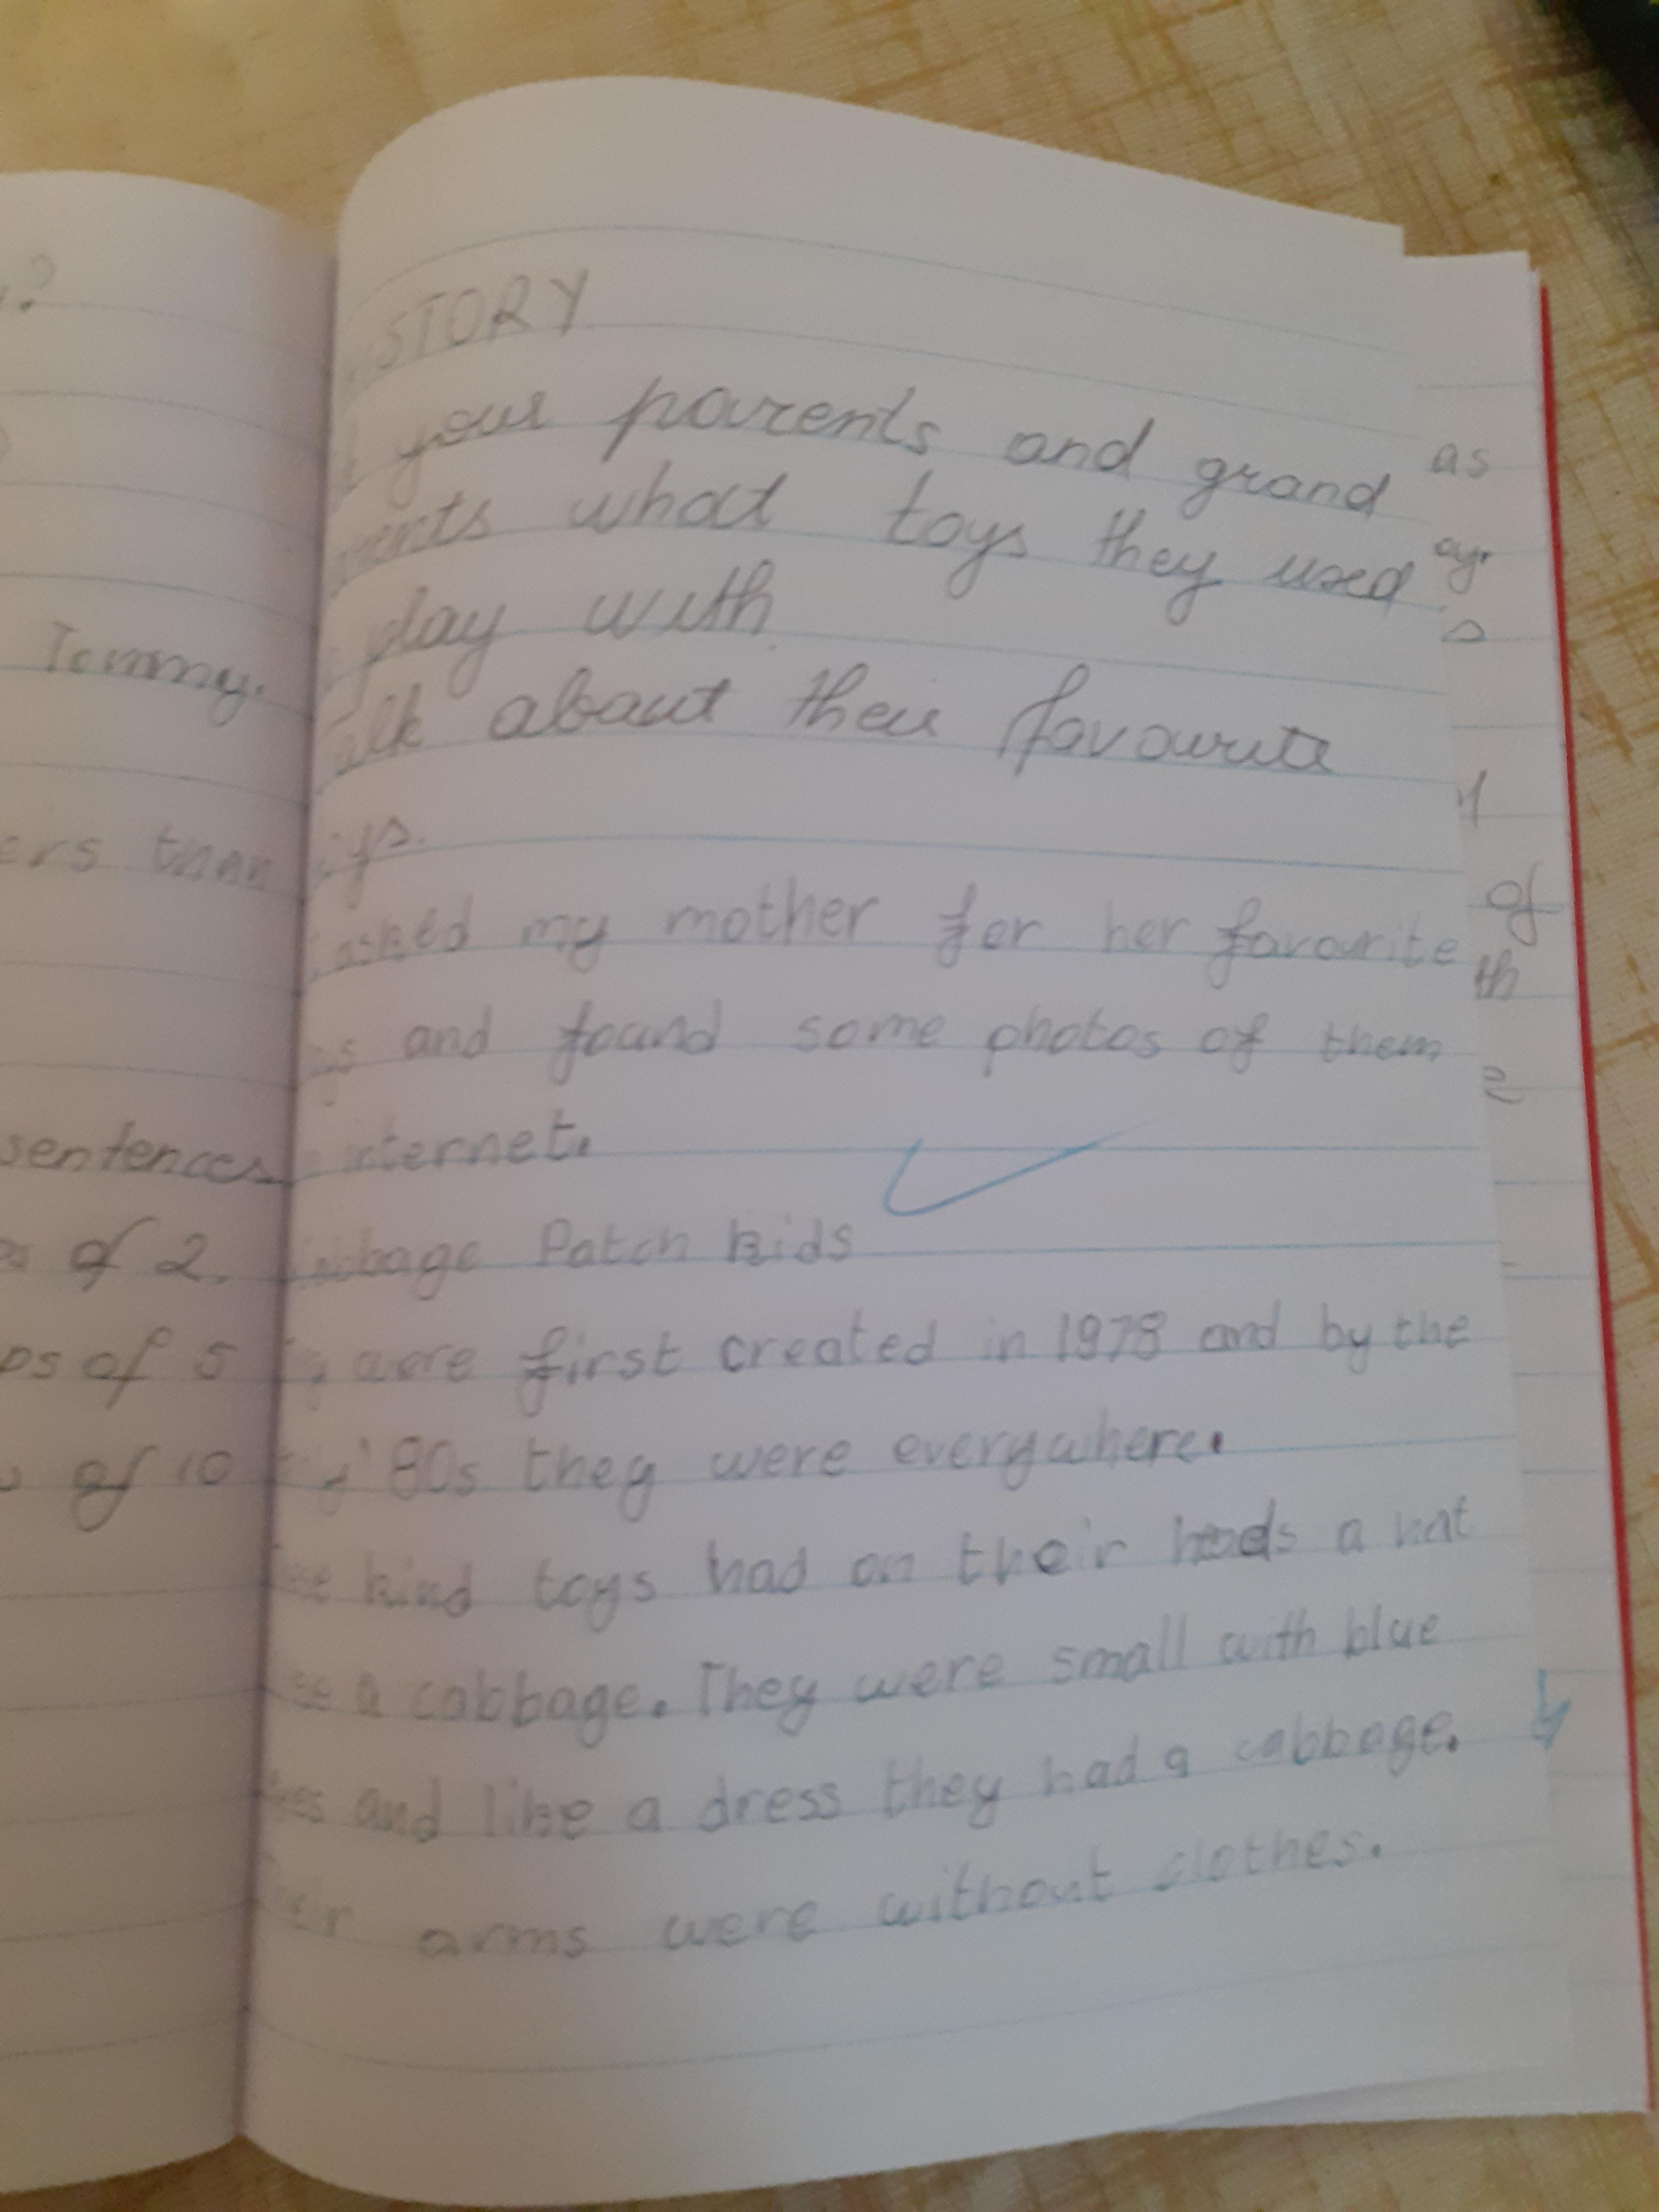 ?
Tommy.
than
sentences
of 2.
of 5
of 10
STORY
your parents and grand
what toys they used
play with
about their favourite
asked my mother for her favourite
and found some photos of them
internet.
Cabbage Patch kids
were first created in 1978 and by the
'80s they were everywhere.
kind toys had on their heads a hat
a cabbage. They were small with blue
and like a dress they had a cabbage.
arms were without clothes.
as
of
th